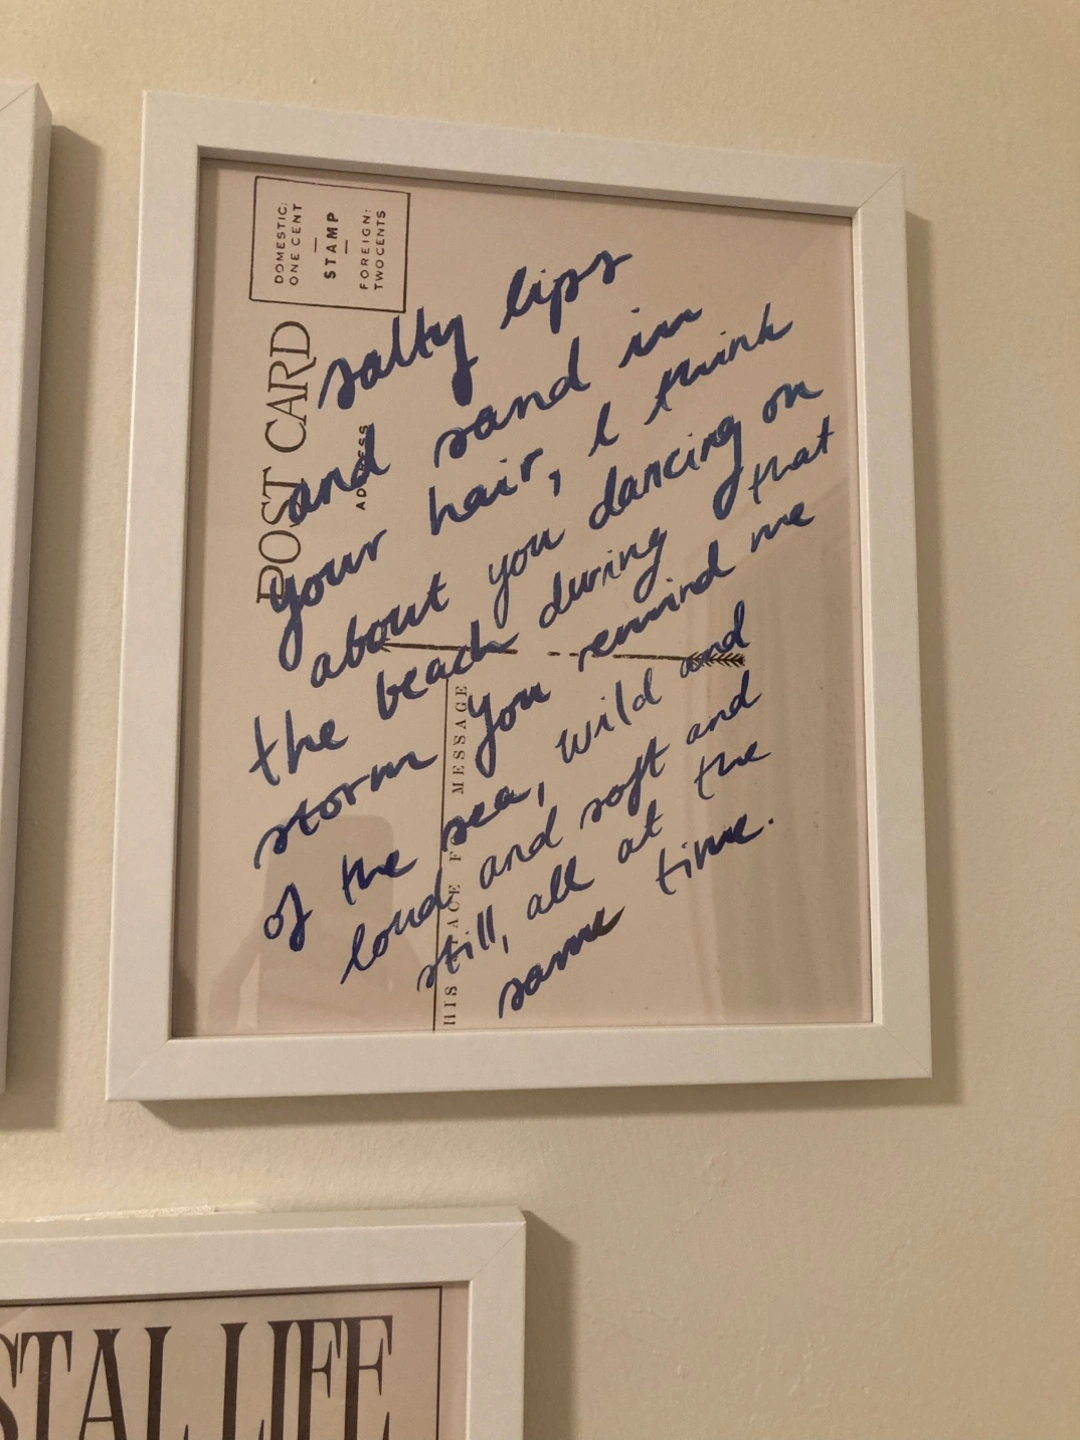 DOMESTIC:
ONE CENT
STAMP
FOREIGN:
TWO CENTS
POST CARD
ADDRESS
HIS ACE F MESSAGE
salty lips
and sand in
your hair, I think
about you dancing on
the beach during that
storm you remind me
of the sea, wild and
loud and soft and
still, all at the
same time.
STAL LIFE